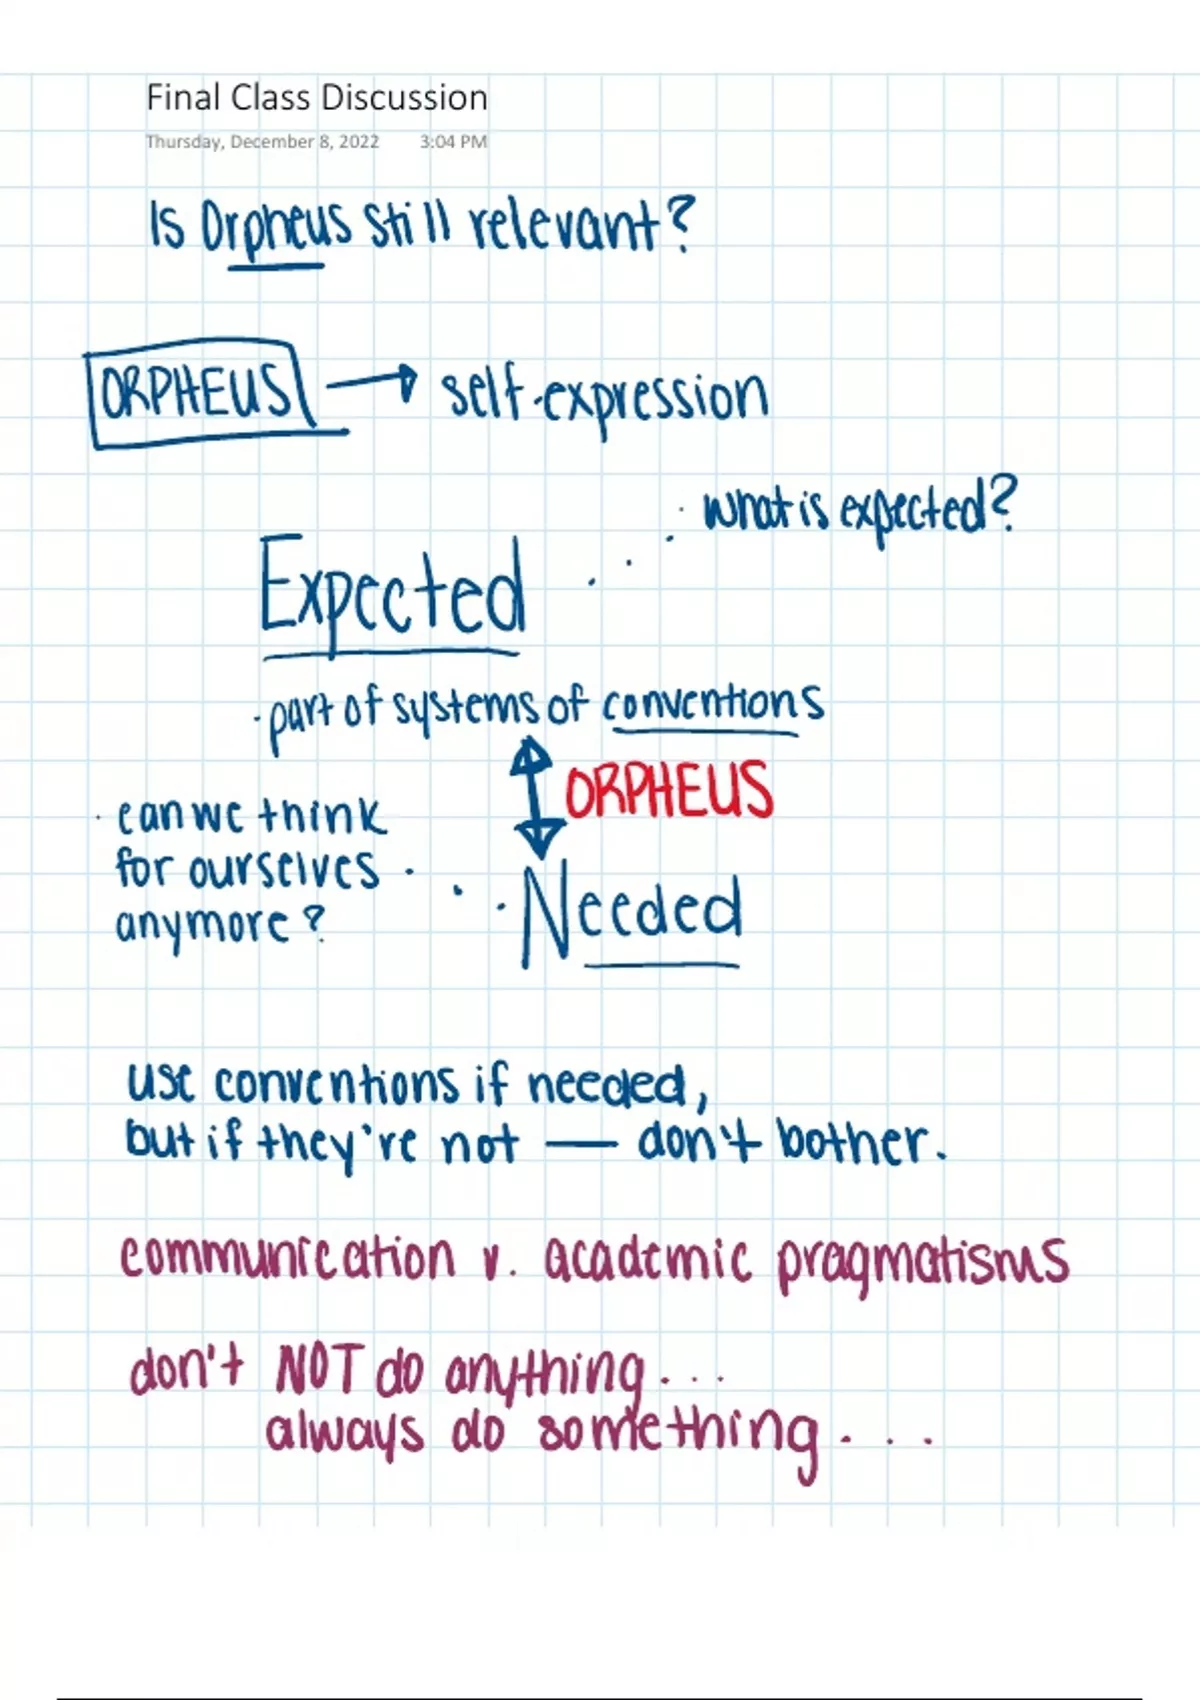 Final Class Discussion
Thursday, December 8, 2022 3:04 PM
Is Orpheus still relevant?
ORPHEUS → self-expression
· what is expected?
Expected
· part of systems of conventions
ORPHEUS
· can we think
for ourselves
anymore?
Needed
use conventions if needed,
but if they're not — don't bother.
communication v. academic pragmatisms
don't NOT do anything...
always do something....